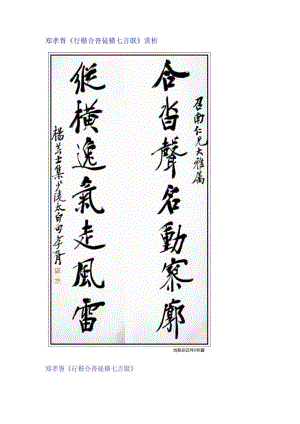 郑孝胥《行楷合沓徒横七言联》赏析
召南仁兄大雅属
合沓聲名動寥廓
縱橫逸氣走風雷
楊芸士集少陵太白句 孝胥
郑孝胥《行楷合沓徒横七言联》